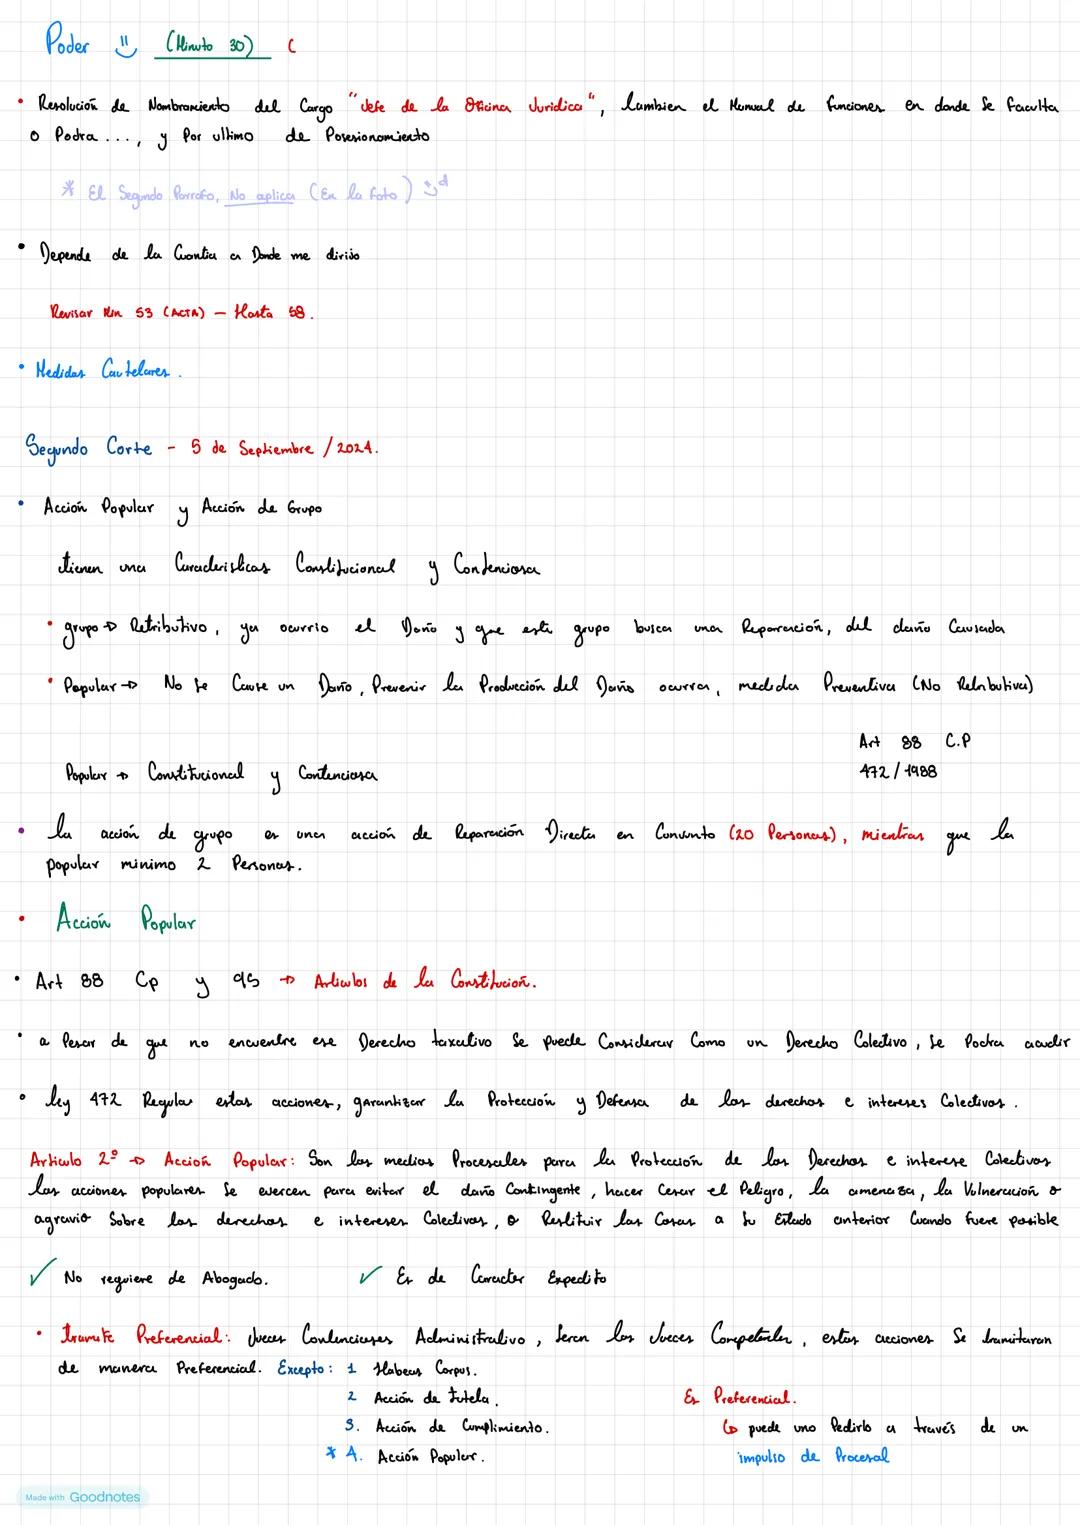 Poder (Minuto 30) C
• Resolución de Nombramiento del Cargo "Jefe de la Oficina Juridica", tambien el Manual de funciones en donde Se faculta
o Podra ..., y Por ultimo de Posesionamiento
* El Segundo Parrafo, No aplica (En la foto)
• Depende de la Cuantia a Donde me dirijo
Revisar Min 53 (ACTA) – Hasta 58.
• Medidas Cautelares.
Segundo Corte - 5 de Septiembre / 2024.
• Acción Popular y Acción de Grupo
tienen una Caracteristicas Constitucional y Contenciosa
• grupo → Retributivo, ya ocurrio el Daño y que este grupo busca una Reparación, del daño Causada
• Popular → No Se Cause un Daño, Prevenir la Producción del Daño ocurra, medida Preventiva (No Retributiva)
Art 88 C.P
472 / 1988
Popular → Constitucional y Contenciosa
• la acción de grupo es una acción de Reparación Directa en Conjunto (20 Personas), mientras que la
popular minimo 2 Personas.
• Acción Popular
• Art 88 Cp y 95 → Articulos de la Constitución.
• a Pesar de que no encuentre ese Derecho taxativo Se puede Considerar Como un Derecho Colectivo, Se Podra acudir
• ley 472 Regula estas acciones, garantizar la Protección y Defensa de los derechos e intereses Colectivos.
Articulo 2º → Acción Popular: Son los medios Procesales para la Protección de los Derechos e interese Colectivos
las acciones populares Se ejercen para evitar el daño Contingente, hacer Cesar el Peligro, la amenaza, la Vulneración o
agravio Sobre los derechos e intereses Colectivos, o Restituir las Cosas a Su Estado anterior Cuando fuere posible
✓ No requiere de Abogado. ✓ Es de Caracter Expedito
• tramite Preferencial: Jueces Contenciosos Administrativo, Seran los Jueces Competentes, estas acciones Se tramitaran
de manera Preferencial. Excepto: 1 Habeas Corpus.
2 Acción de tutela. Es Preferencial.
3. Acción de Cumplimiento. ↳ puede uno Pedirlo a través de un
* 4. Acción Popular. impulso de Procesal
Made with Goodnotes